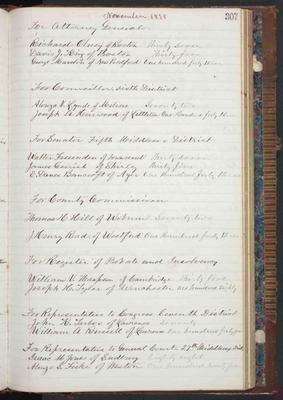 November 1878
307
For Attorney General
Richard Olney of Boston Thirty seven
of Boston Thirty five
George Marston of New Bedford One hundred forty three
For Councillor Sixth District
Alonzo of Melrose Seventy two
Joseph of Littleton One Hundred forty three
For Senator Fifth Middlesex District
Walter Fessenden of Townsend Thirty seven
James of Shirley Thirty five
E Dana Bancroft of Ayer One Hundred forty three
For County Commissioner
Thomas Hill of Woburn Seventy two
J Henry Read of Westford One Hundred forty three
For Register of Probate and Insolvency
William of Cambridge Thirty
Joseph H. Tyler of Winchester one hundred eighty
For Representative to Congress Seventh District
John K. Tarbox of Lawrence seventy
William A Russell of Lawrence One hundred forty
For Representative to General Court 27th Middlesex Dist
Isaac H. Jones of Sudbury eighty eight
Alonzo S. Fiske of Weston One hundred